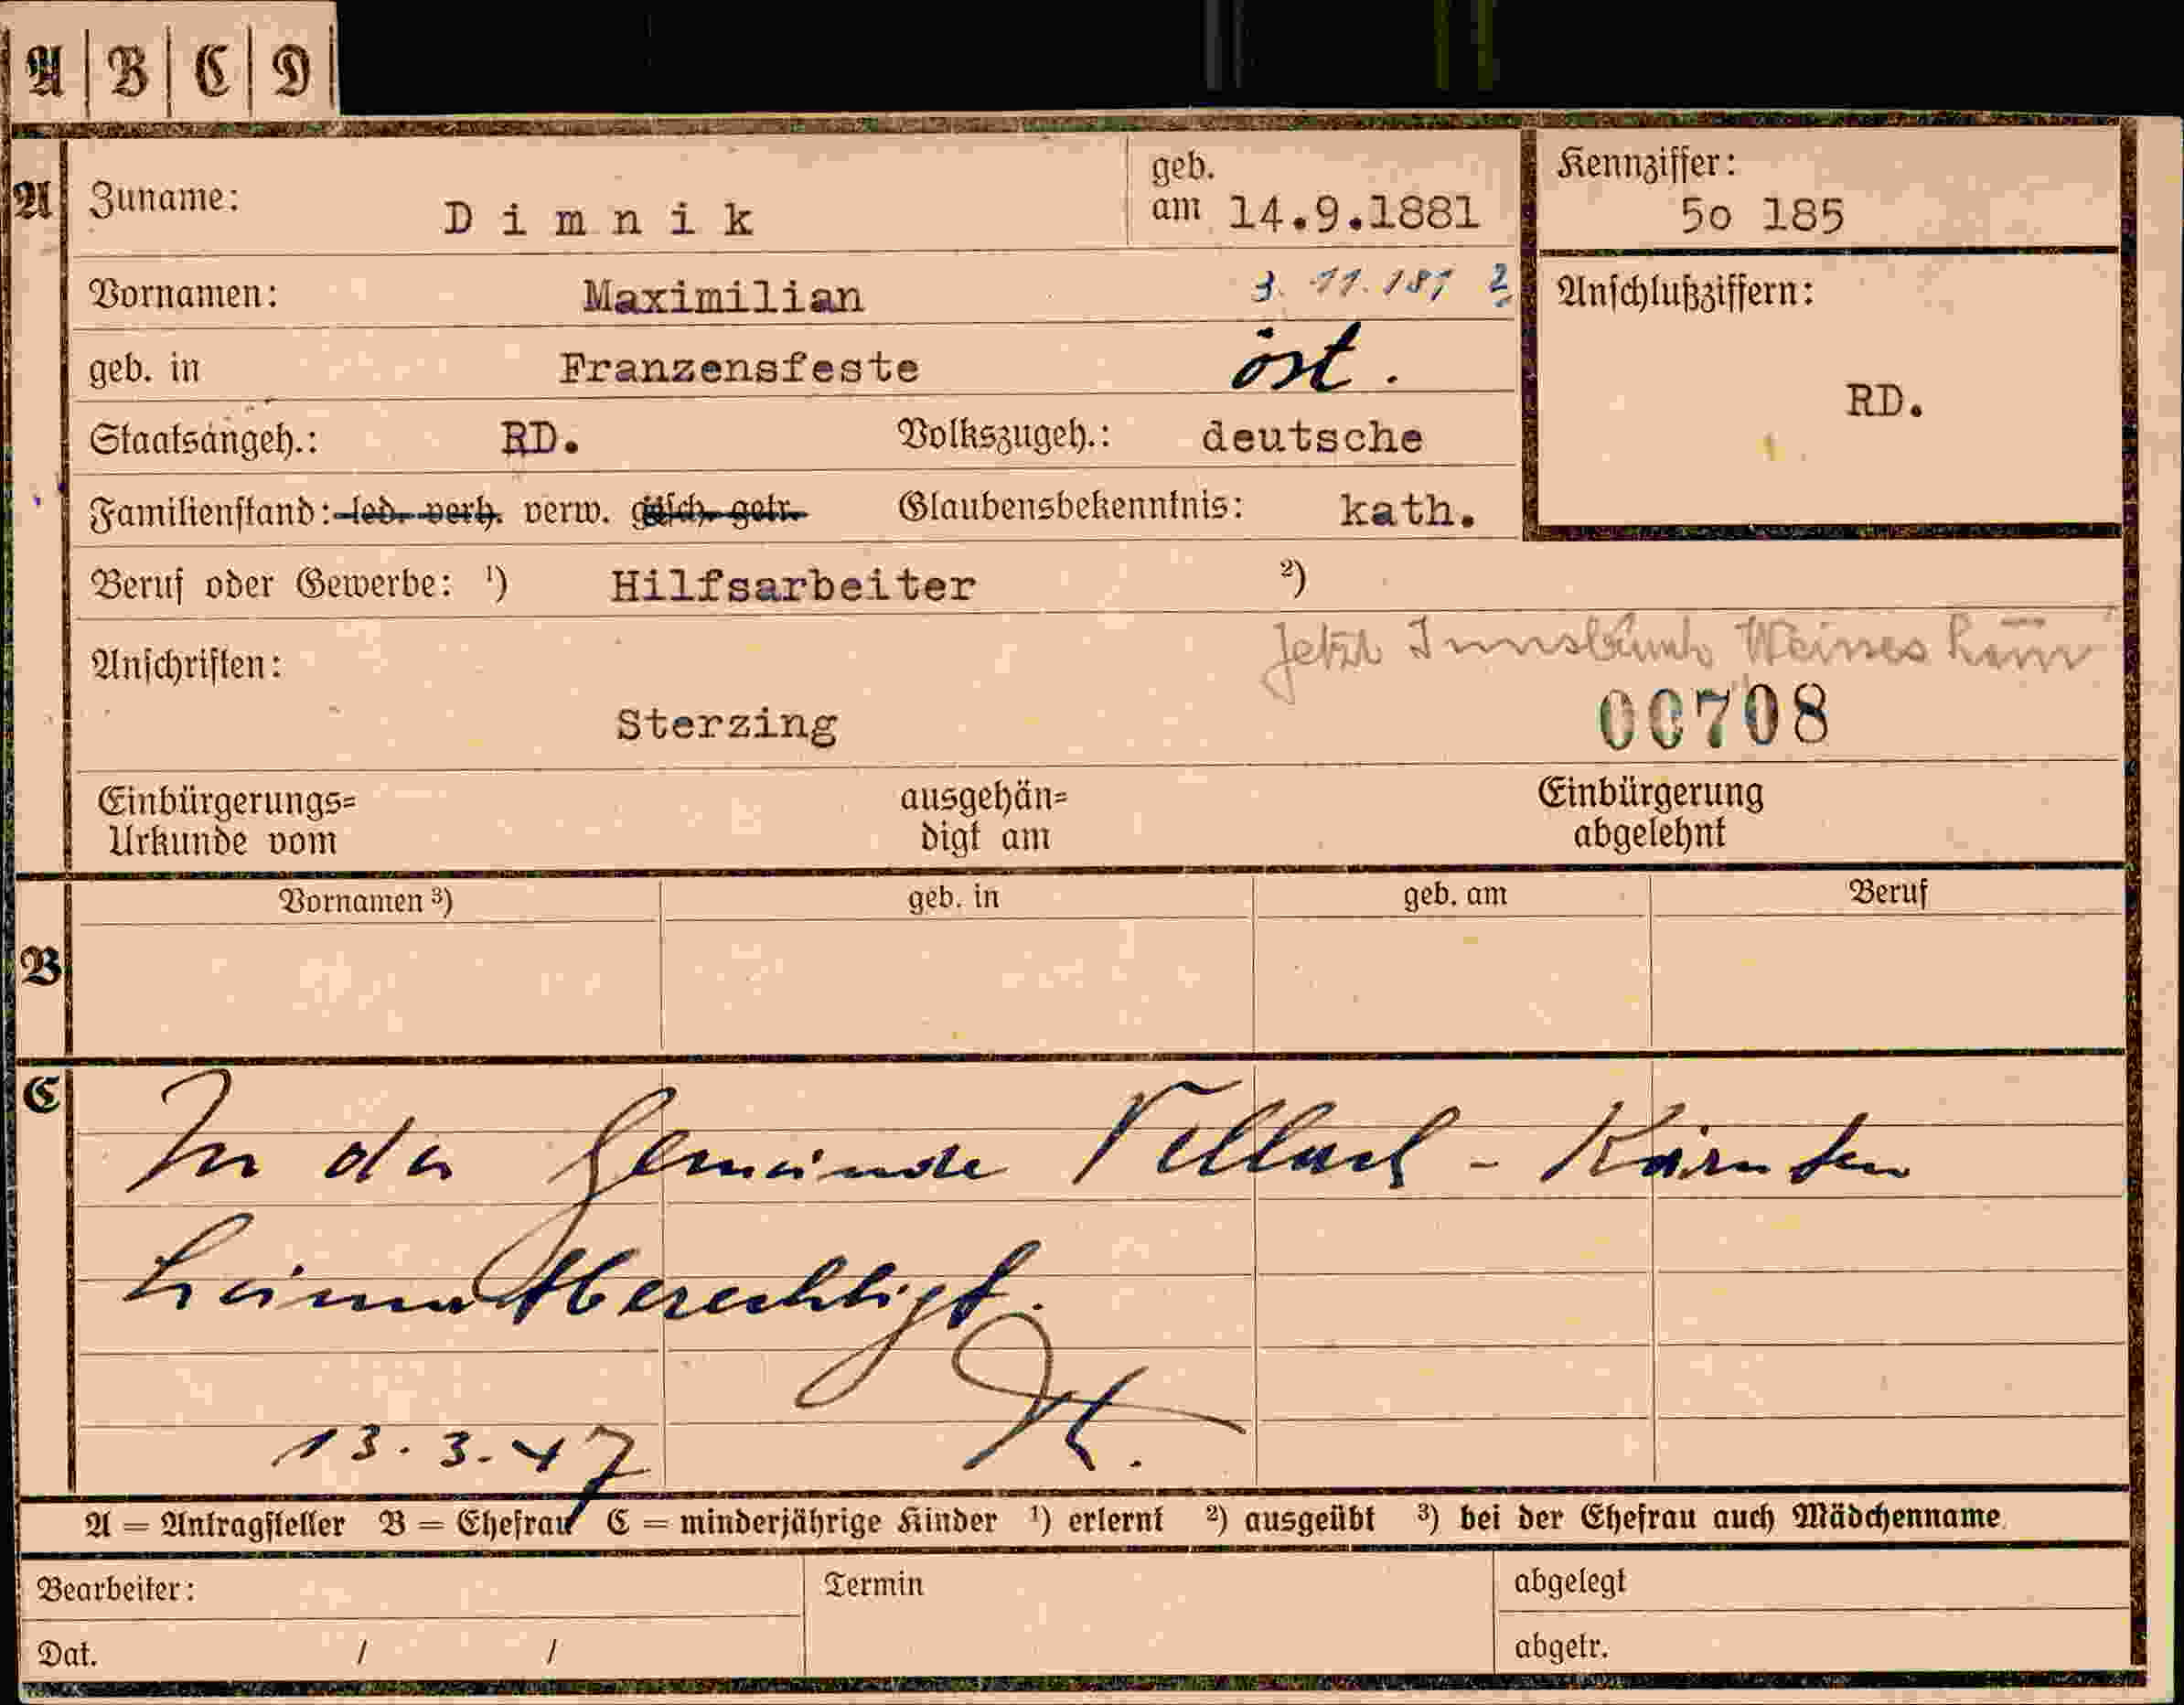 A | B | C | D
A
Zuname: Dimnik
geb. am 14.9.1881
Kennziffer:
5o 185
Vornamen: Maximilian
3. 11. 187 2
Anschlußziffern:
RD.
geb. in Franzensfeste
öst.
Staatsangeh.: RD. Volkszugeh.: deutsche
Familienstand: led. verh. verw. gesch. getr. Glaubensbekenntnis: kath.
Beruf oder Gewerbe: ¹) Hilfsarbeiter ²)
Jetzt Innsbruck Weinses
Anschriften:
Sterzing
00708
Einbürgerungs=
Urkunde vom
ausgehän=
digt am
Einbürgerung
abgelehnt
B
Vornamen ³) geb. in geb. am Beruf
C
In der Gemeinde Vellach - Kärnten
heimatberechtigt.
13.3.47
A = Antragsteller B = Ehefrau C = minderjährige Kinder ¹) erlernt ²) ausgeübt ³) bei der Ehefrau auch Mädchenname
Bearbeiter: Termin abgelegt
Dat. / / abgetr.